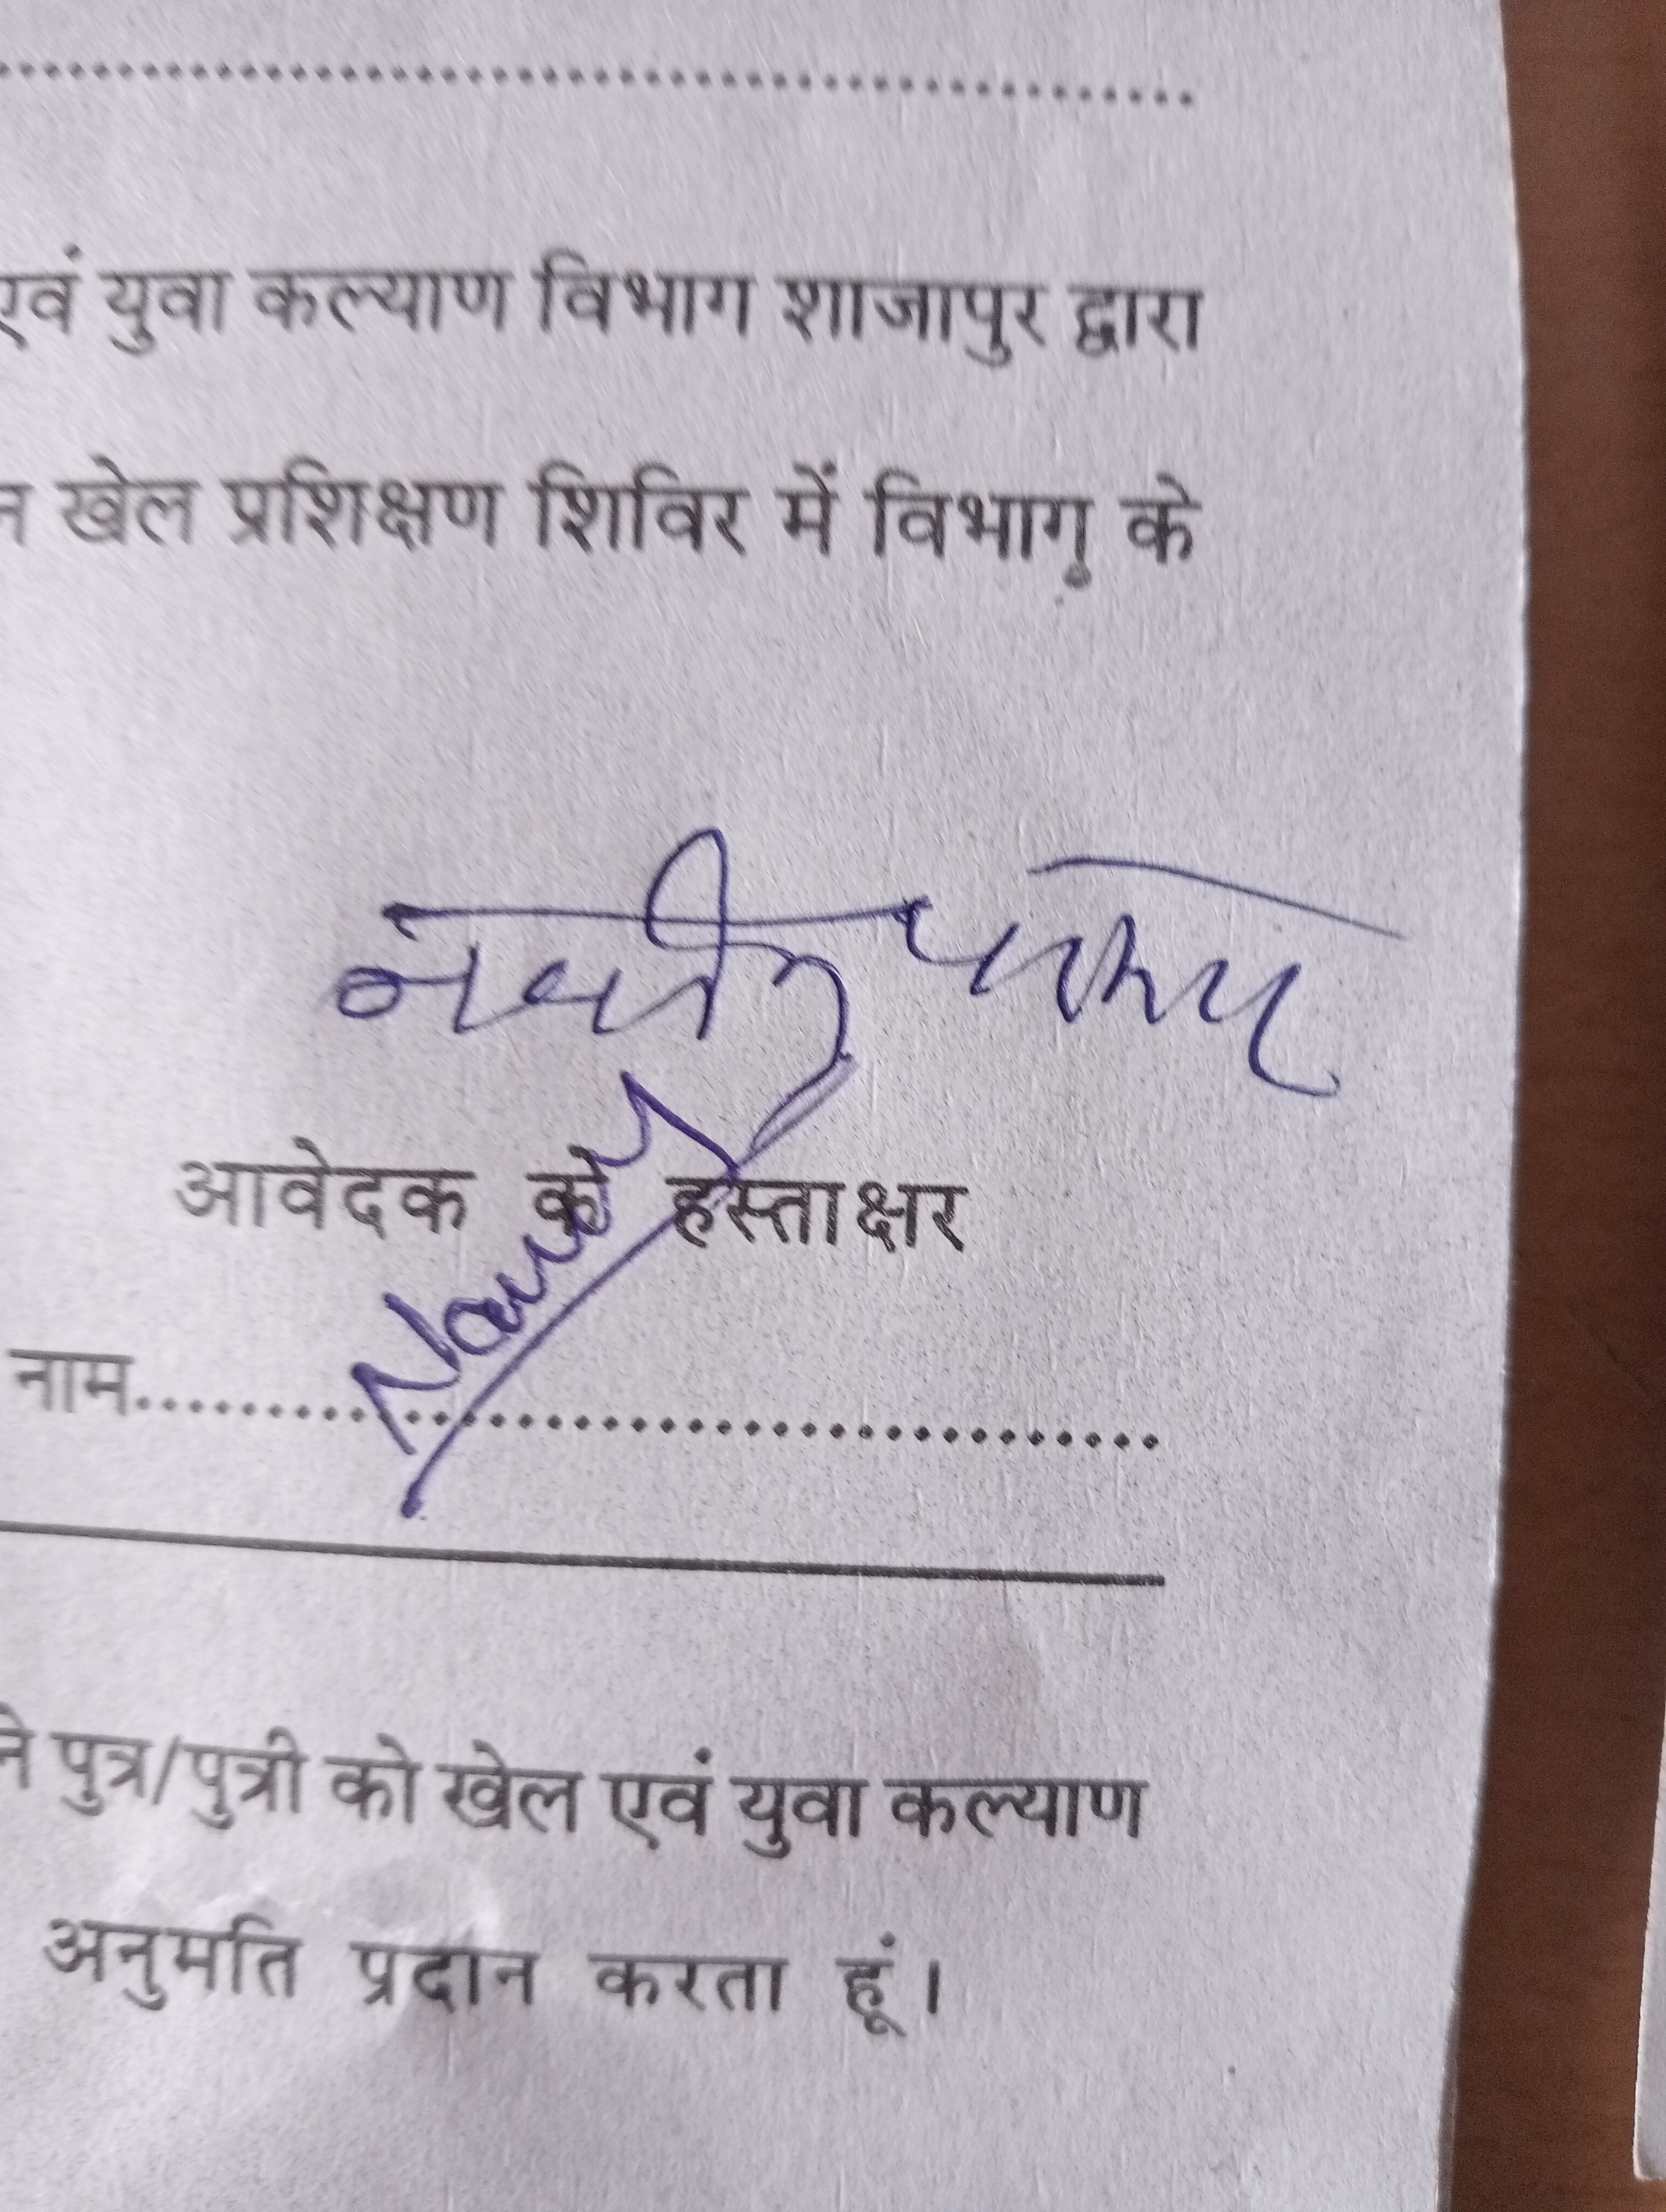 एवं युवा कल्याण विभाग शाजापुर द्वारा
खेल प्रशिक्षण शिविर में विभाग के
आवेदक के हस्ताक्षर
नाम..........................................
ने पुत्र/पुत्री को खेल एवं युवा कल्याण
अनुमति प्रदान करता हूं।